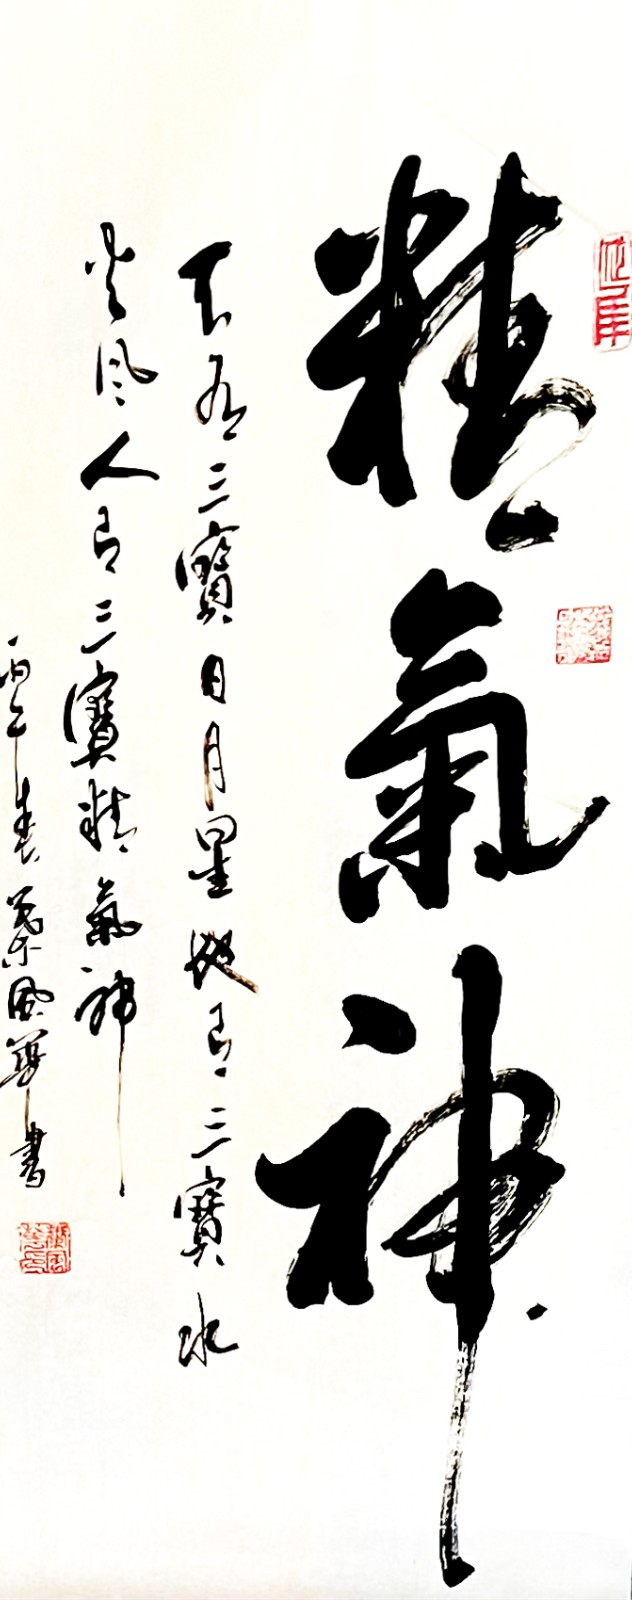 精氣神
天有三寶日月星地有三寶水
火風人有三寶精氣神
丙午春葉風華書